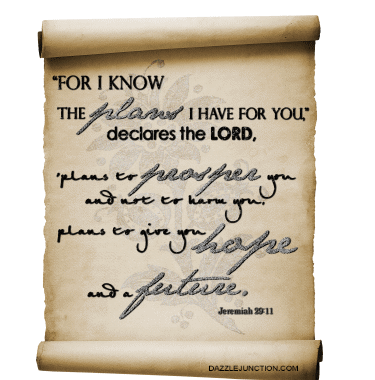 “FOR I KNOW
THE plans I HAVE FOR YOU,”
declares the LORD,
‘plans to prosper you
and not to harm you,
plans to give you hope
and a future.
Jeremiah 29:11
DAZZLEJUNCTION.COM